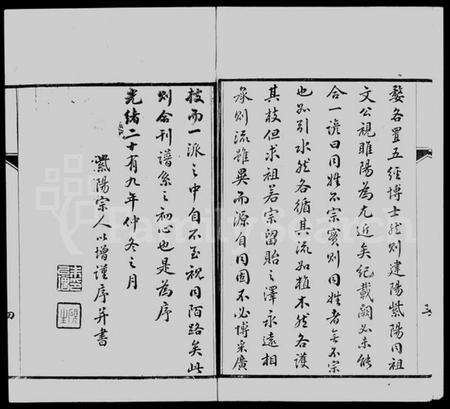 婺各置五經博士然則建陽紫陽同祖
文公視睢陽為尤近矣紀載顯必未能
合一諺曰同姓不宗實則同姓者無不宗
也如引水然各循其流如植木然各護
其枝但求祖若宗留貽之澤永遠相
承則流雖異而源自同固不必博采廣
三
技而一派之中自不至視同陌路矣此
則合刊譜系之初心也是為序
光緒二十有九年仲冬之月
紫陽宗人以增謹序并書
四